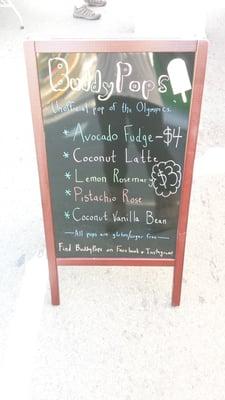 BuddyPops
Unofficial pop of the Olympics.
* Avocado Fudge - $4
* Coconut Latte
* Lemon Rosemary
* Pistachio Rose
* Coconut Vanilla Bean
— All pops are gluten/sugar free —
Find BuddyPops on Facebook + Instagram